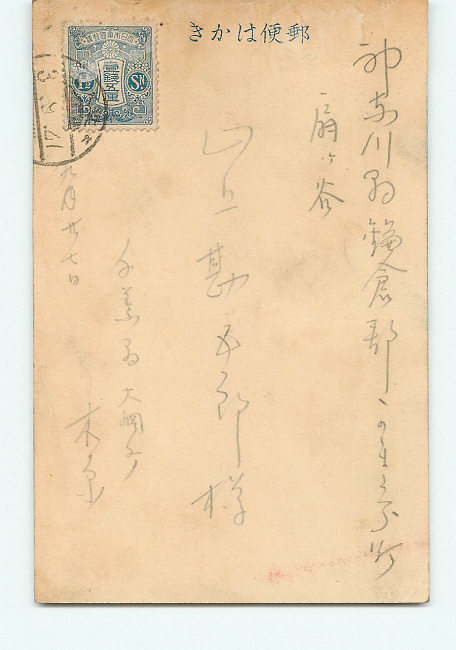 郵便はかき
大日本帝國郵便
壹錢五厘
1½ SN
神奈川縣鎌倉郡かまくら町
扇ヶ谷
山上勘五郎様
千葉縣大網町
木原
九月廿七日